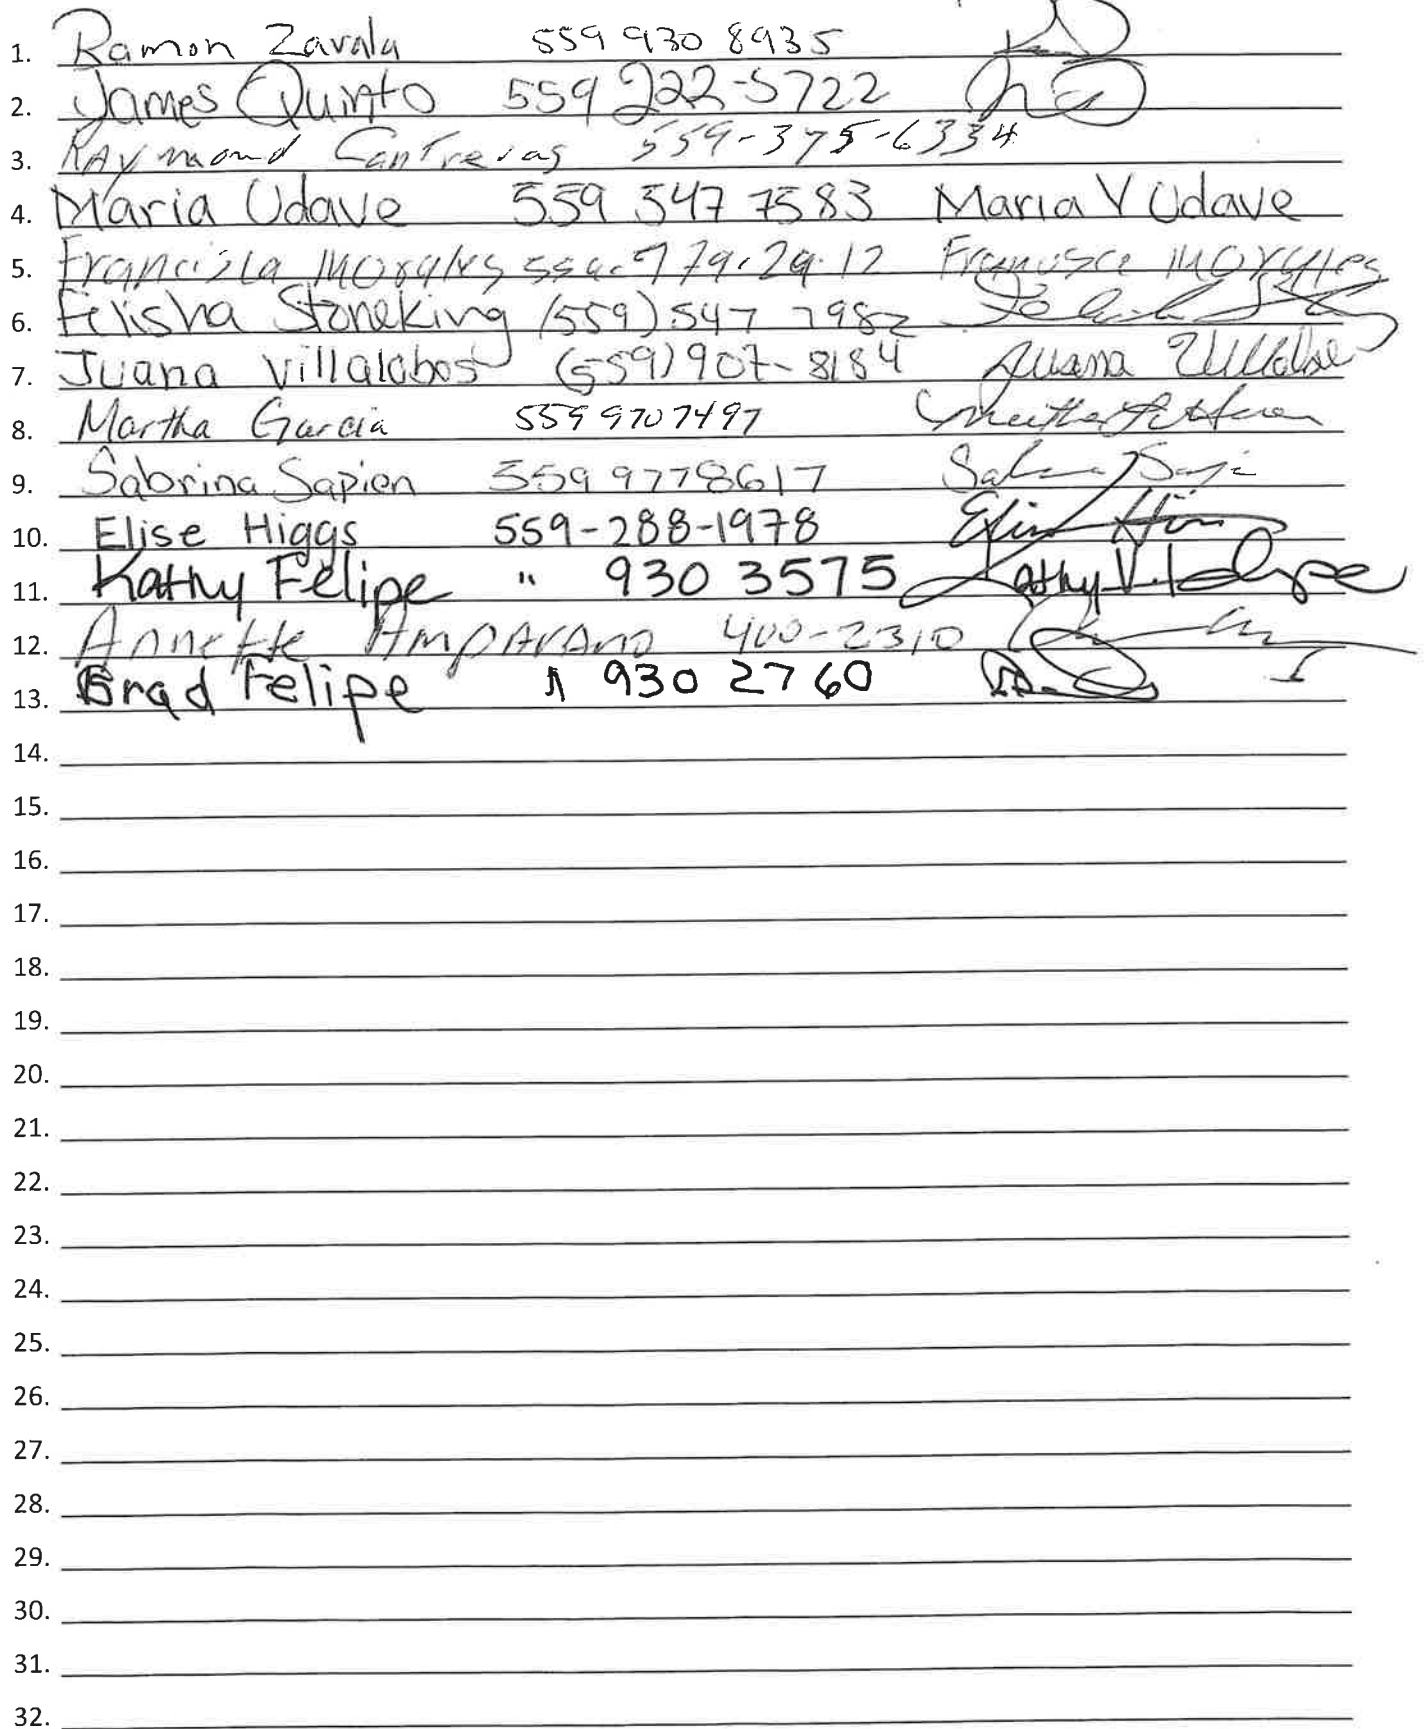 1. Ramon Zavala 559 930 8935
2. James Quinto 559 222-5722
3. RAymond Contreras 559-375-6334
4. Maria Udave 559 347 7583 Maria Y Udave
5. Francisca Morales 559-779-29-12 Francisca Morales
6. Felisha Stoneking (559) 547 7982
7. Juana Villalobos (559) 907-8184 Juana
8. Martha Garcia 559 9707497
9. Sabrina Sapien 559 9778617
10. Elise Higgs 559-288-1978
11. Kathy Felipe " 930 3575 Kathy V. Felipe
12. Annette AmpArAno 400-2310
13. Brad Felipe 930 2760
14.
15.
16.
17.
18.
19.
20.
21.
22.
23.
24.
25.
26.
27.
28.
29.
30.
31.
32.